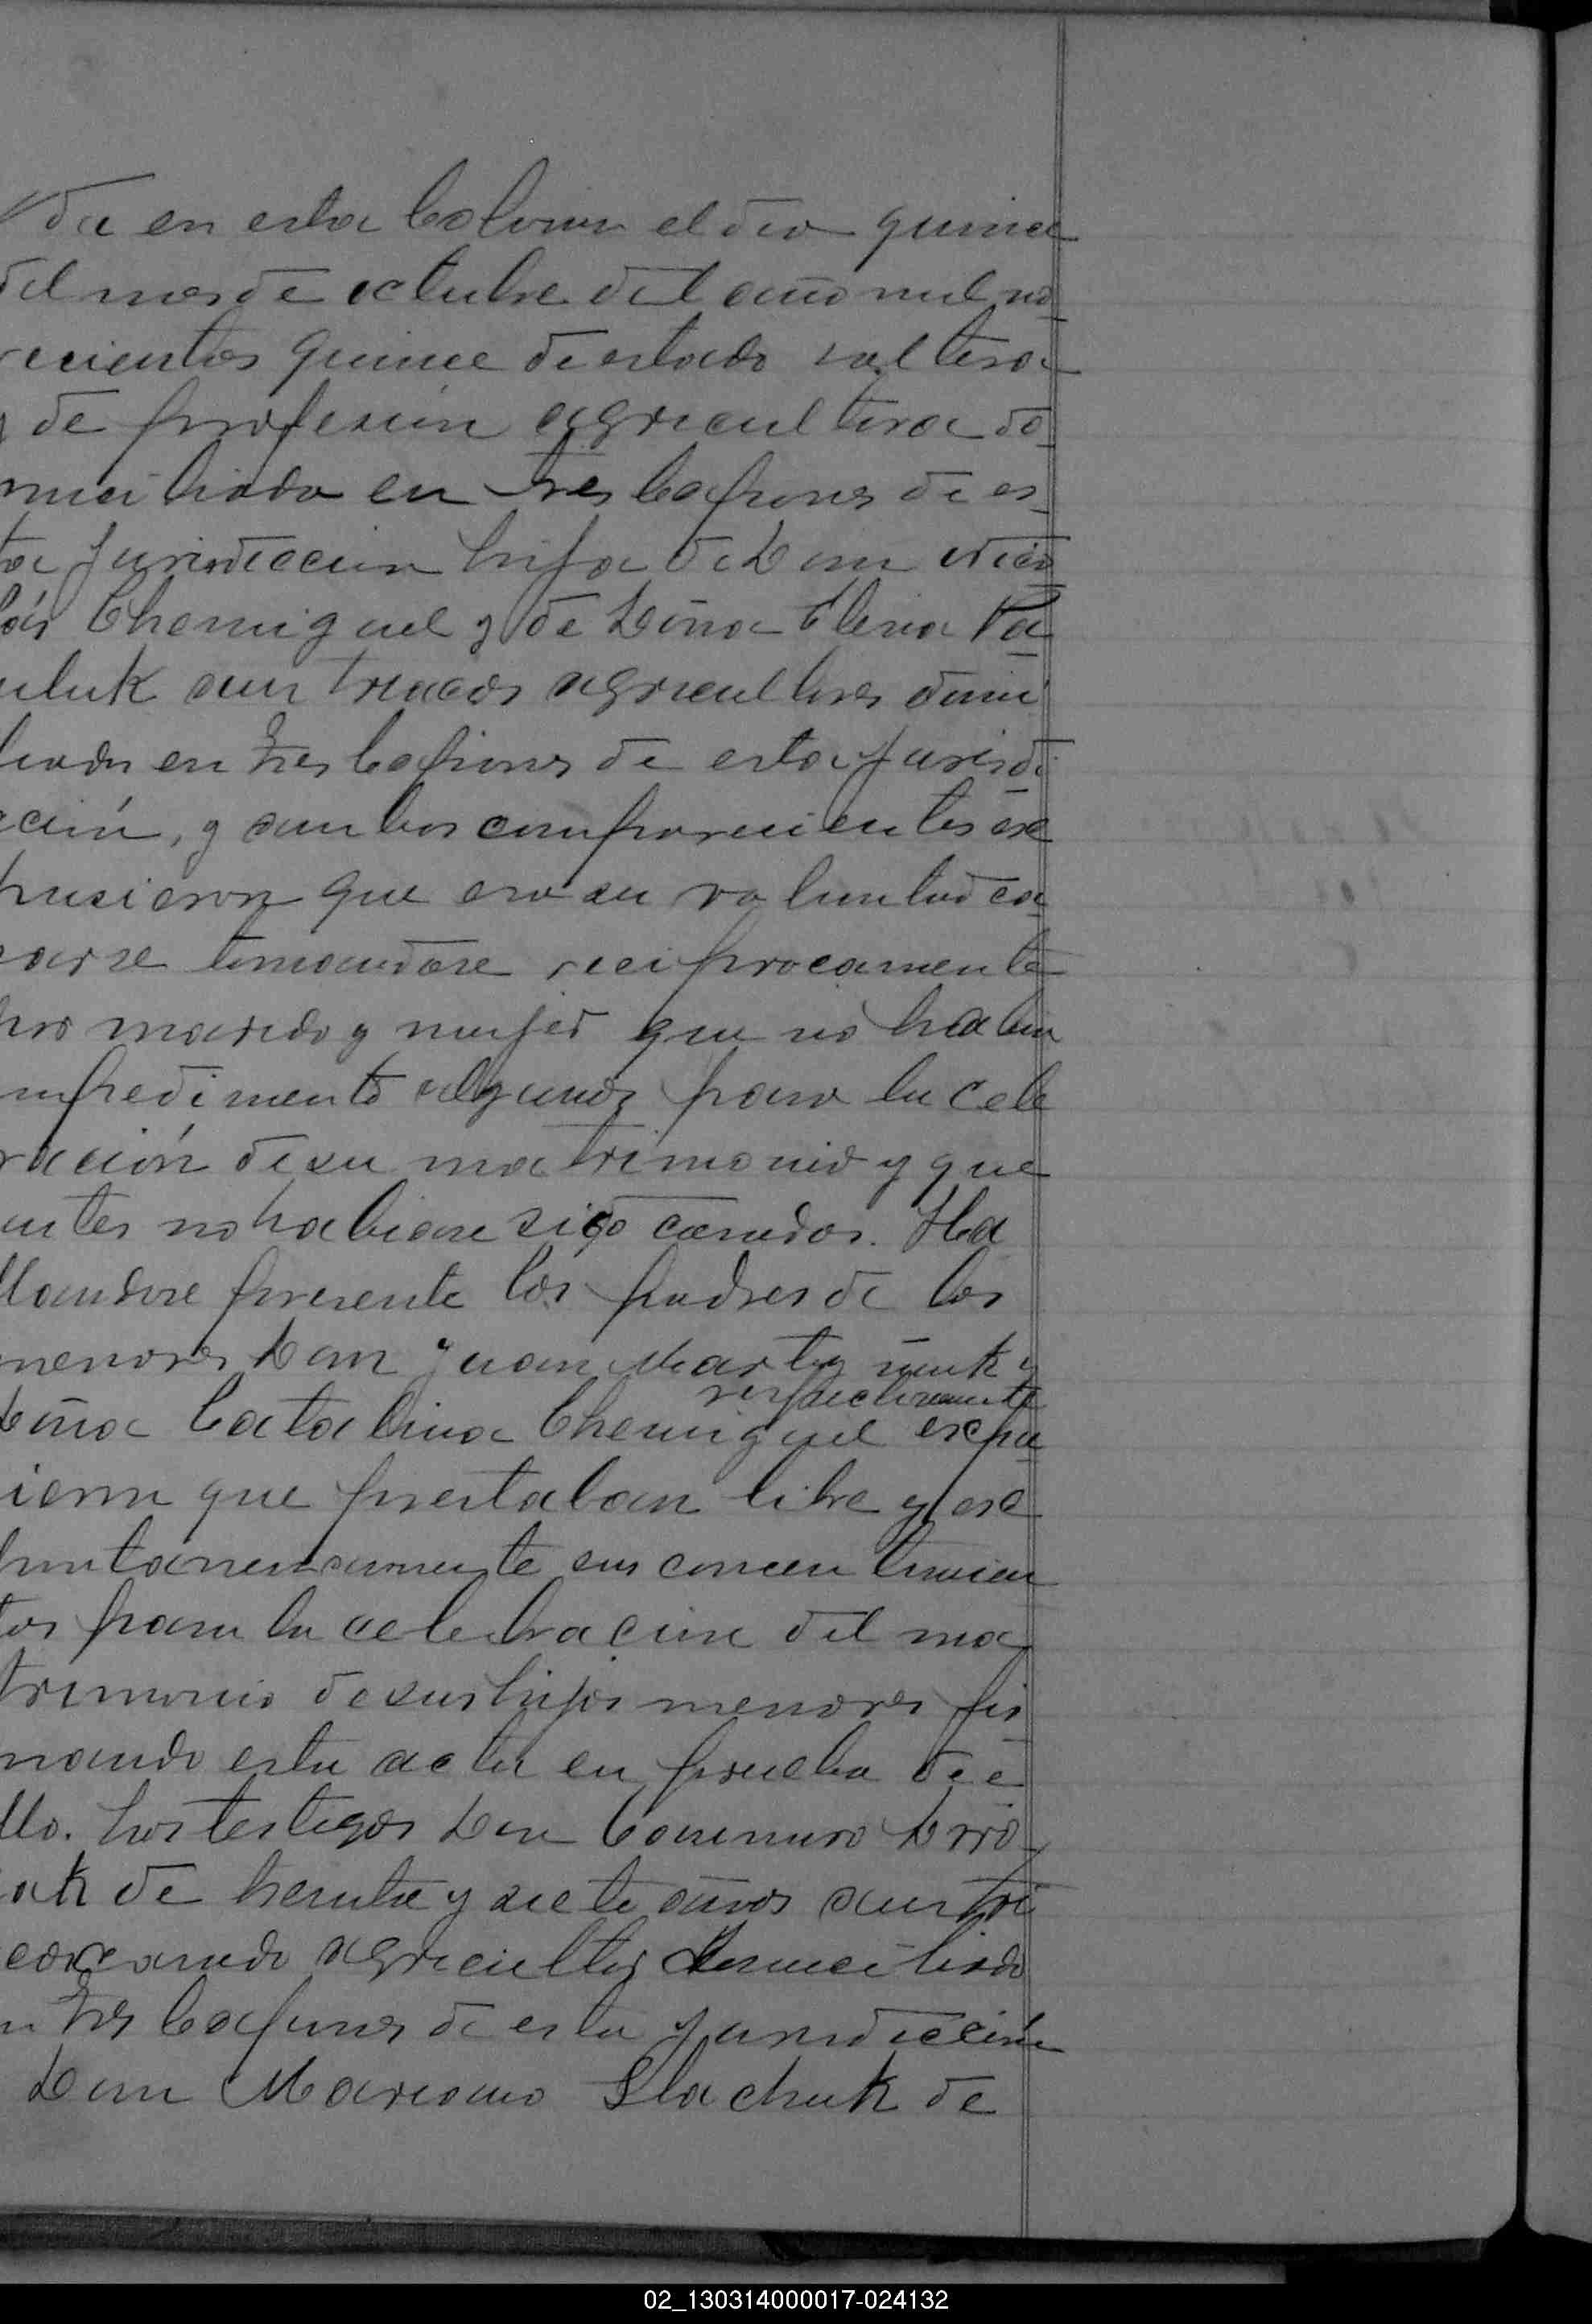 da en esta Colonia el dia quince
del mes de octubre del año mil no
vecientos quince de estado soltera
y de profesion agricultora do
miciliada en tres Capones de es
ta jurisdiccion hija de Don Nico
lás Chemiguel y de Doña Elena Pa
uluk austriacos agricultores domi
liados en tres Capones de esta jurisdi
ccion, y ambos comparecientes ex
pusieron que era su voluntad ca
sarse tomandose reciprocamente
por marido y mujer que no habia
impedimento alguno para la cele
bración de su matrimonio y que
antes no habian sido casados. Ha
llandose presente los padres de los
menores Don Juan y
respectivamente
Doña Catalina Chemiguel expu
sieron que prestaban libre y es
pontaneamente sus concentimien
tos para la celebracion del ma
trimonio de sus hijos menores fir
mando esta acta en prueba de e
llo. Los testigos Don Casimiro
de treinta y siete años austri
aco casado agricultor domiciliado
en tres Capones de esta jurisdiccion
Don Mariano Slachuk de
02_130314000017-024132